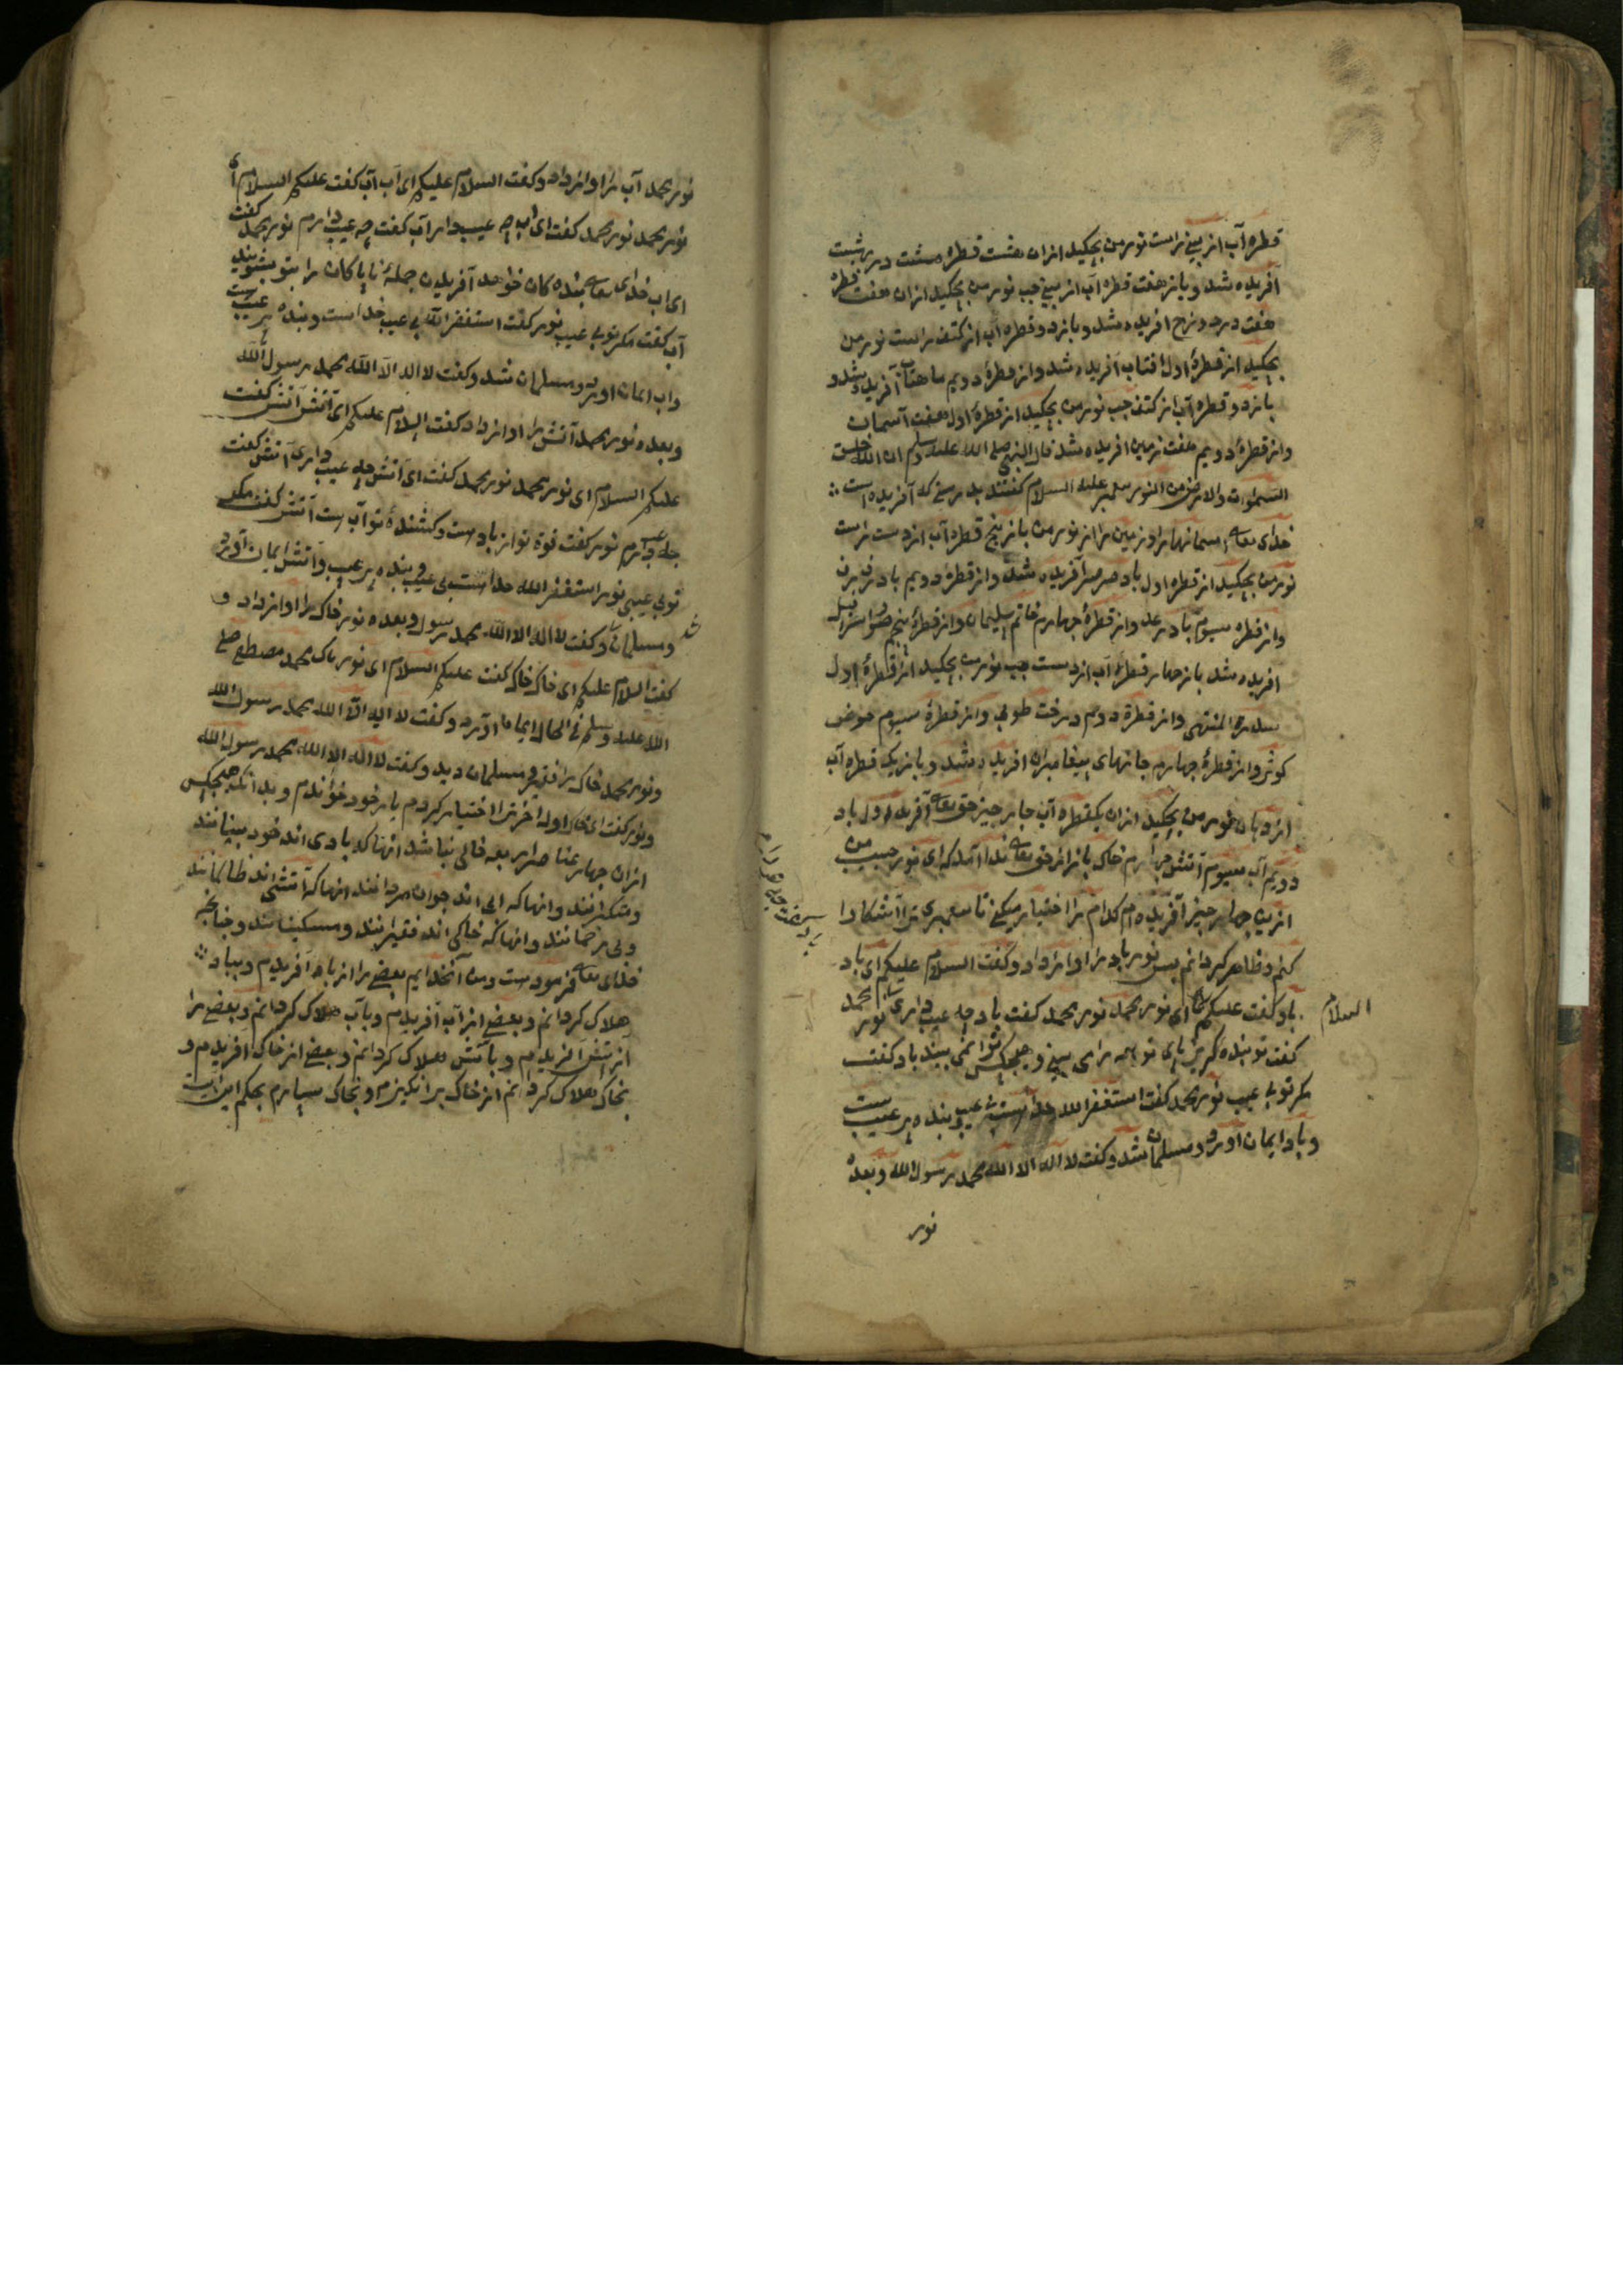 قطره آب از بینی راست نور من بچکید ازان هشت قطره هشت در بهشت
آفریده شد و باز هفت قطره آب از بینی چپ نور من بچکید ازان هفت قطره
هفت در دوزخ افریده شد و باز دو قطره آب از کتف راست نور من
بچکید از قطرهٔ اول افتاب آفریده شد و از قطرهٔ دویم ماهتاب آفریده شد و
باز دو قطره آب از کتف چپ نور من بچکید از قطرهٔ اول هفت آسمان
و از قطرهٔ دویم هفت زمین افریده شد قال النبی صلی الله علیه وسلم ان الله خلق
السموات والارض من النور پیغمبر علیه السلام گفتند بدرستی که آفریده است
خدای تعالی اسمانها را و زمین را از نور من باز پنج قطره آب از دست راست
نور من بچکید از قطره اول باد صرصر آفریده شد و از قطرهٔ دویم باد
و از قطره سیوم باد رعد و از قطرهٔ چهارم خاتم سلیمان و از قطرهٔ پنجم صور اسرافیل
افریده شد باز چهار قطرهٔ آب از دست چپ نور من بچکید از قطرهٔ اول
سدرة المنتهی و از قطرهٔ دویم درخت طوبی و از قطرهٔ سیوم حوض
کوثر و از قطرهٔ چهارم جانهای پیغامبران افریده شد و باز یک قطره آب
از دهان نور من بچکید ازان یکقطره آب چار چیز حق تعالی آفرید اول باد
دویم آب سیوم آتش چهارم خاک باز از حق تعالی ندا آمد که ای نور حبیب من
ازین چهار چیز آفریده ام کدام را اختیار میکنی تا پیغمبری ترا آشکارا
کنم و ظاهر گردانم پس نور باد را اواز داد و گفت السلام علیکم ای باد
باد گفت علیکم السلام ای نور محمد نور محمد گفت باد چه عیب داری نور محمد
گفت تو بنده گریز پای تو همه رای بینی و هیچکس ترا نمی بیند باد گفت
مگر تو بی عیب نور محمد گفت استغفر الله خداست بی عیب و بنده پر عیب ست
و باد ایمان اورد و مسلمان شد و گفت لا اله الا الله محمد رسول الله و بعده
نور
نور محمد آب را اواز داد و گفت السلام علیکم ای آب آب گفت علیکم السلام ای
نور محمد نور محمد گفت ای اب چه عیب دار آب گفت چه عیب دارم نور محمد گفت
ای اب خدای تعالی بنده کان خواهد آفریدن جملهٔ ناپاکان را بتو بشویند
آب گفت مگر تو بی عیب نور گفت استغفر الله بی عیب خداست و بنده پر عیب ست
و اب ایمان اورد و مسلمان شد و گفت لا اله الا الله محمد رسول الله
و بعده نور محمد آتش را اواز داد گفت السلام علیکم ای آتش آتش گفت
علیکم السلام ای نور محمد نور محمد گفت ای آتش چه عیب داری آتش گفت
چه عیب دارم نور گفت قوة تو از باد ست و کشندهٔ تو آب ست آتش گفت مگر
تو بی عیبی نور استغفر الله خداست بی عیب و بنده پر عیب و آتش ایمان آورد
و مسلمان شد و گفت لا اله الا الله محمد رسول و بعده نور خاک را اواز داد و
گفت السلام علیکم ای خاک خاک گفت علیکم السلام ای نور پاک محمد مصطفی صلی
الله علیه وسلم فی الحال ایمان اورد و گفت لا اله الا الله محمد رسول الله
و نور محمد خاک را فقیر و مسلمان دید و گفت لا اله الا الله محمد رسول الله
و نور گفت ای خاک اول اخر ترا اختیار کردم یار خود خواندم و بدانکه هیچکس
ازان چهار عناصر اربعه خالی نباشد انها که بادی اند خود بینانند
و متکبرانند و انها که ابی اند جوان مردانند انها که آتشی اند ظالمانند
و بی رحمانند و انها که خاکی اند فقیرانند و مسکینانند و چنانچه
خدای تعالی فرمودست و من آنخدایم بعضی را از باد آفریدم و بباد
هلاک گردانم و بعضی از آب آفریدم و بآب هلاک گردانم و بعضی را
از آتش آفریدم و بآتش هلاک گردانم و بعضی از خاک آفریدم و
بخاک هلاک گردانم از خاک برانگیزم و بخاک سپارم بحکم این آیت